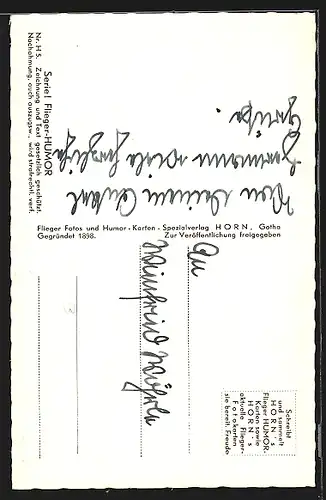 Serie! Flieger-HUMOR
Nr. H 5. Zeichnung und Text gesetzlich geschützt.
Nachahmung, auch auszugsw., wird strafrechtl. verf.
Von deinem Onkel
Hermann viele herzliche
Grüße.
Flieger Fotos und Humor-Karten-Spezialverlag HORN, Gotha
Gegründet 1898. Zur Veröffentlichung freigegeben
An
Winfried
Schreibt
und sammelt
HORN's
Flieger HUMOR-
Karten sowie
HORN's
aktuelle Flieger-
Fotokarten
sie bereit. Freude